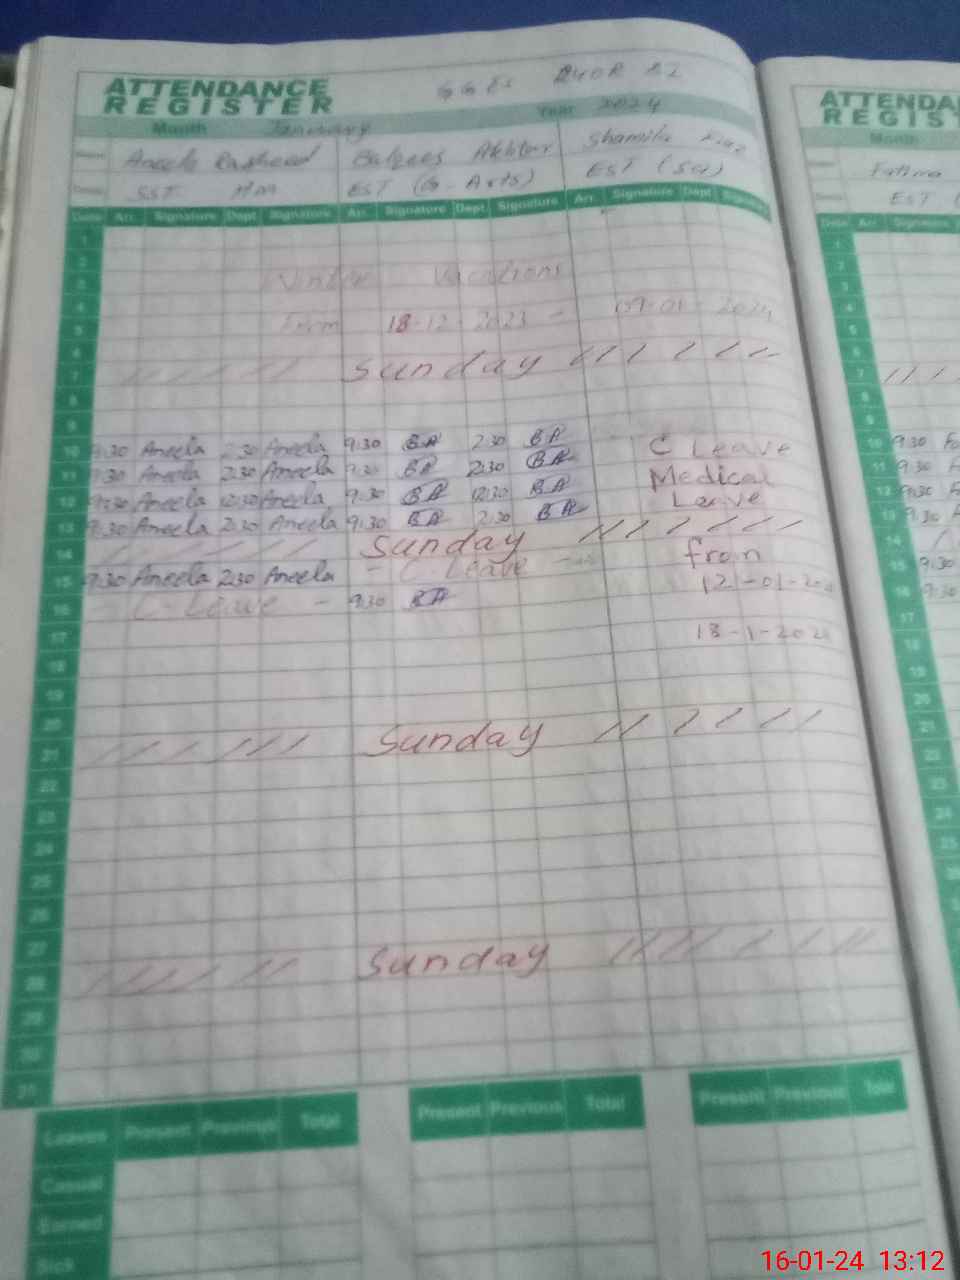 ATTENDANCE
REGISTER
GGES 240R
Month January Year 2024
Aneela Rasheed Balqees Akhtar Shamila
SST EST (G-Arts) EST (Sci)
Date Arr. Signature Dept Signature Arr. Signature Dept. Signature Arr. Signature Dept Signature
1
2
3 Winter Vacations
4
5 From 18-12-2023 - 09-01-2024
6
7 Sunday
8
9
10 9:30 Aneela 2:30 Aneela 9:30 BA 2:30 BA C Leave
11 9:30 Aneela 2:30 Aneela 9:30 BA 2:30 BA Medical
12 9:30 Aneela 12:30 Aneela 9:30 BA 12:30 BA Leave
13 9:30 Aneela 2:30 Aneela 9:30 BA 2:30 BA
14 Sunday
15 9:30 Aneela 2:30 Aneela - C-Leave - from
16 - C-Leave - 9:30 BA 12-01-202
17 18-1-202
18
19
20
21 Sunday
22
23
24
25
26
27
28 Sunday
29
30
31
Leaves Present Previous Total Present Previous Total Present Previous Total
Casual
Earned
Sick
ATTENDA
REGIST
Month
Fatima
EST (
Date Arr. Signature
1
2
3
4
5
6
7
8
9
10 9:30
11 9:30
12 9:30
13 9:30
14
15 9:30
16 9:30
17
18
19
20
21
22
23
24
25
16-01-24 13:12